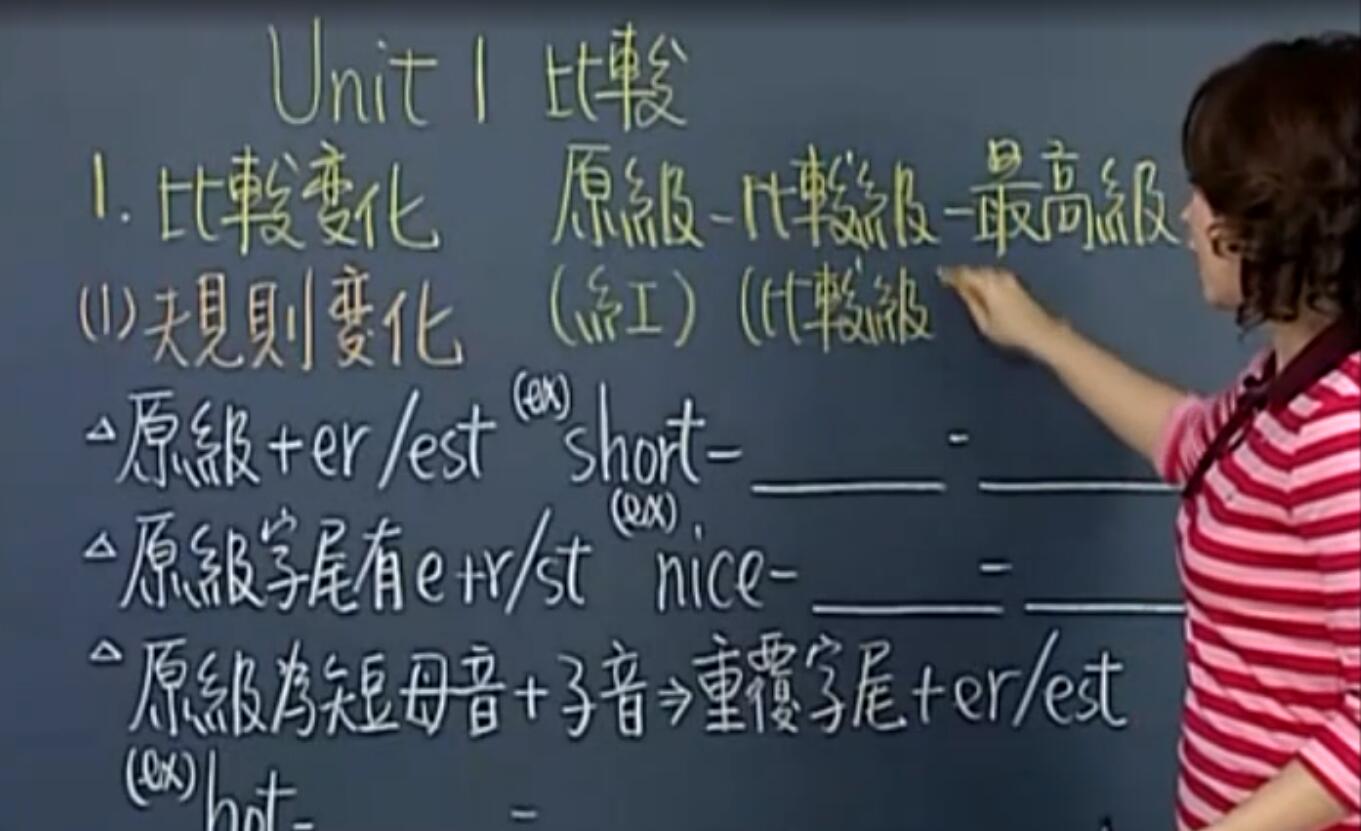 Unit 1 比較
1. 比較变化 原級-比較級-最高級
(1)規則变化 (紅) (比較級
△原級+er/est (ex) short-______-______
△原級字尾有e+r/st (ex) nice-______-______
△原級為短母音+子音⇒重覆字尾+er/est
(ex) hot- -